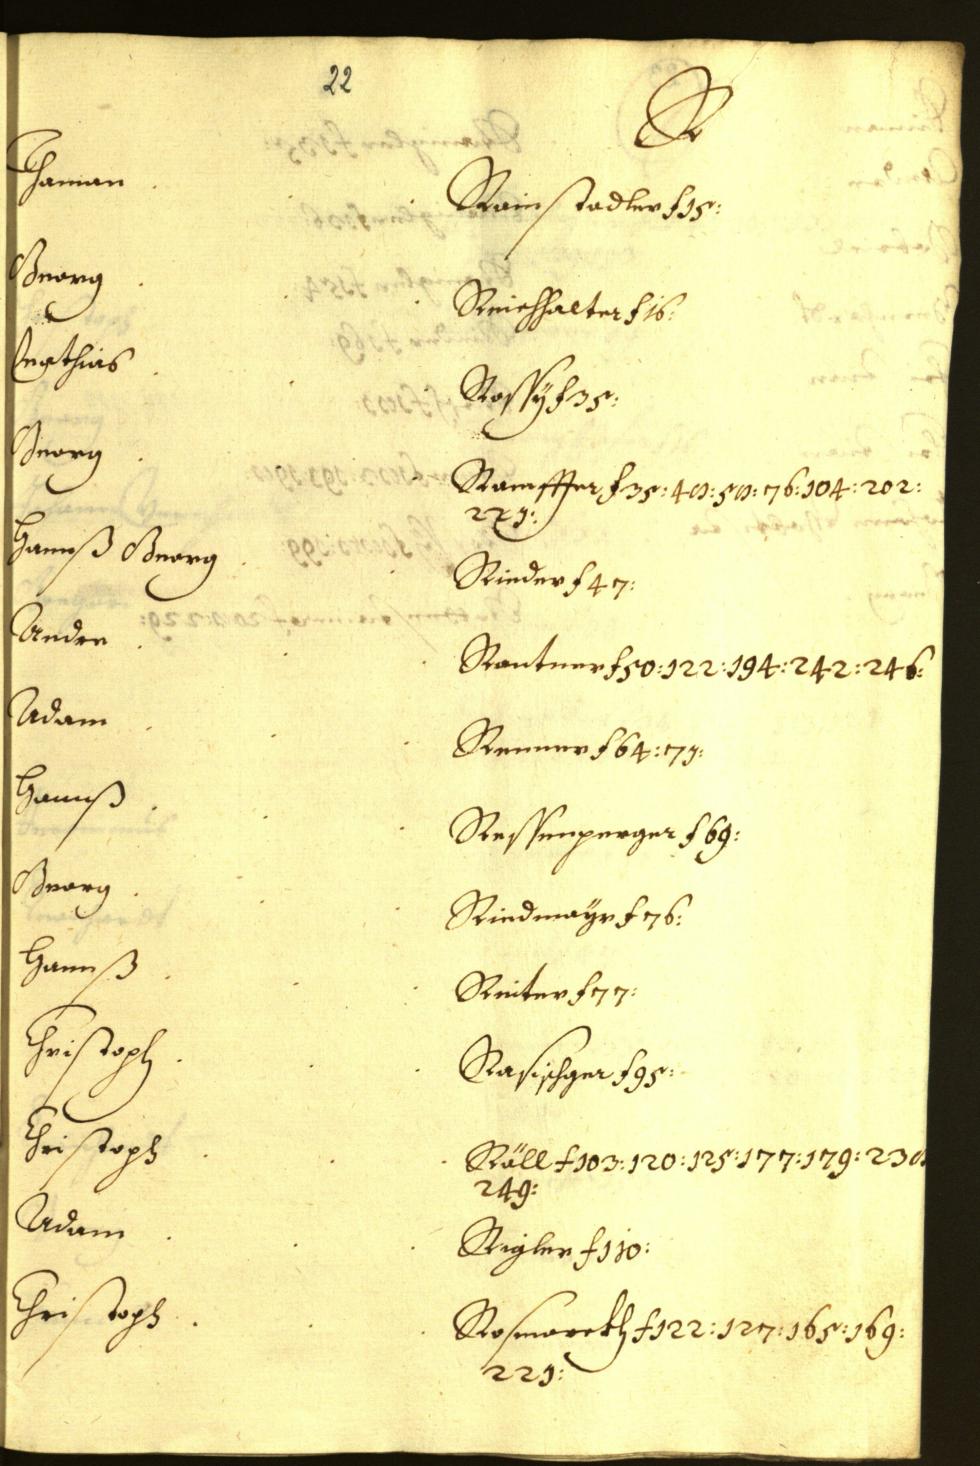 22
R
Thaman . . . Rainstadler f 15:
Georg . . . Reichhalter f 16:
Mathias . . . Rossÿ f 35:
Georg . . . Rampffer f 35: 40: 50: 76: 104: 202:
221:
Hannß Georg . . . Rieder f 47:
Andre . . . Rantner f 50: 122: 194: 242: 246:
Adam . . . Renner f 64: 71:
Hannß . . . Ressenperger f 69:
Georg . . . Riedmaÿr f 76:
Hannß . . . Reiter f 77:
Christoph . . . Rasischger f 95:
Christoph . . . Räll f 103: 120: 125: 177: 179:
249:
Adam . . . Rigler f 110:
Christoph . . . Rosmareckh f 122: 127: 165: 169:
221: